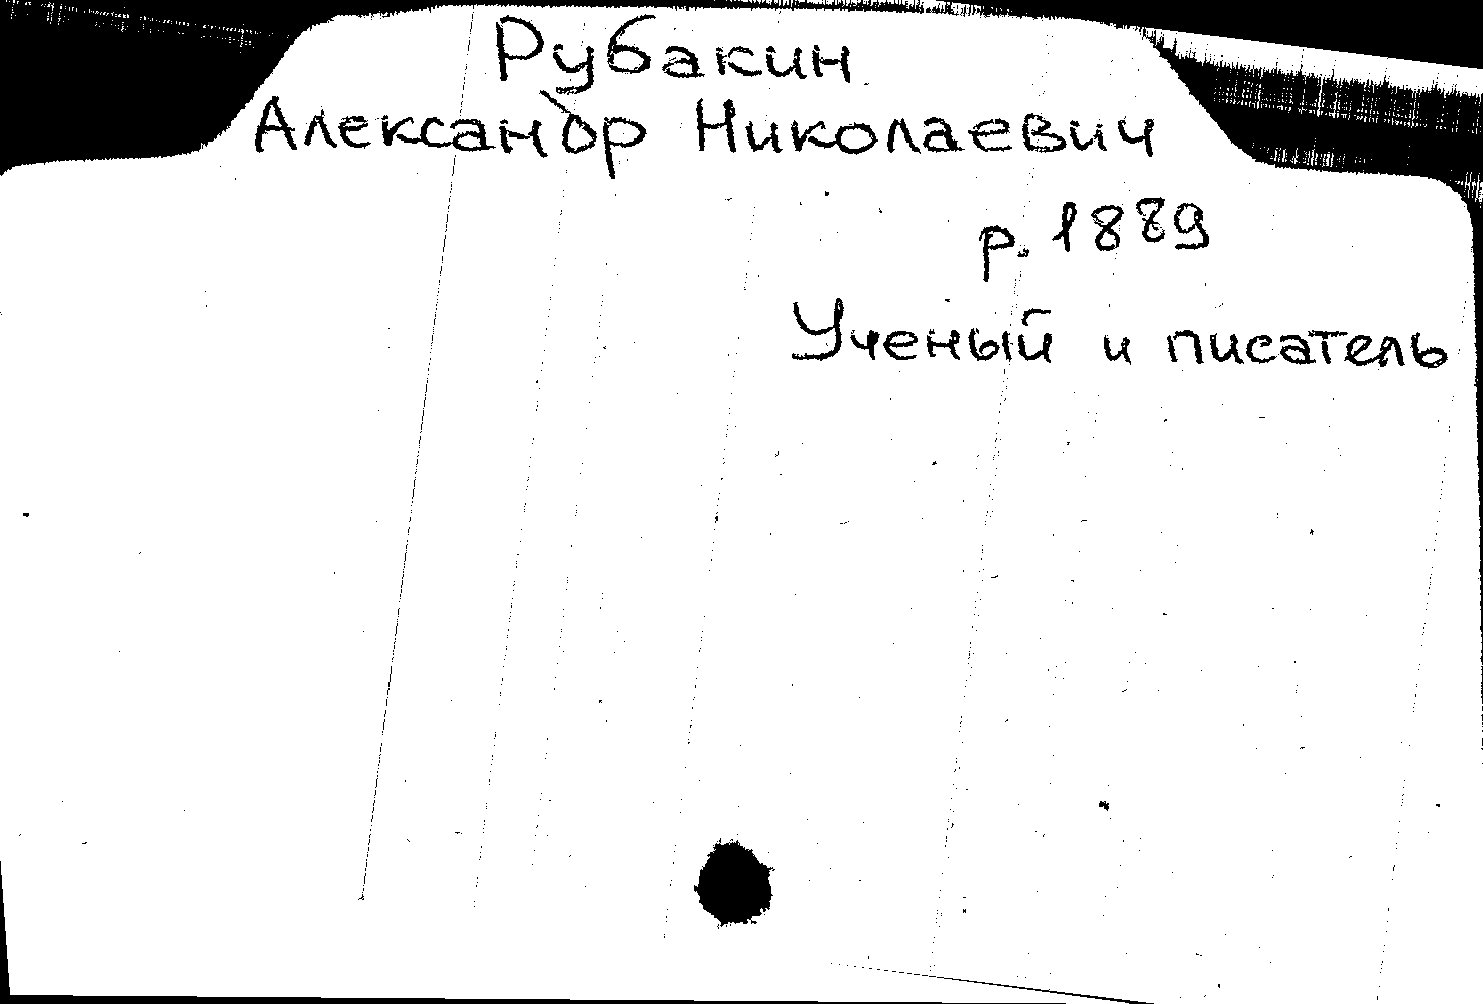 Рубакин
Александр Николаевич
р. 1889
Ученый и писатель